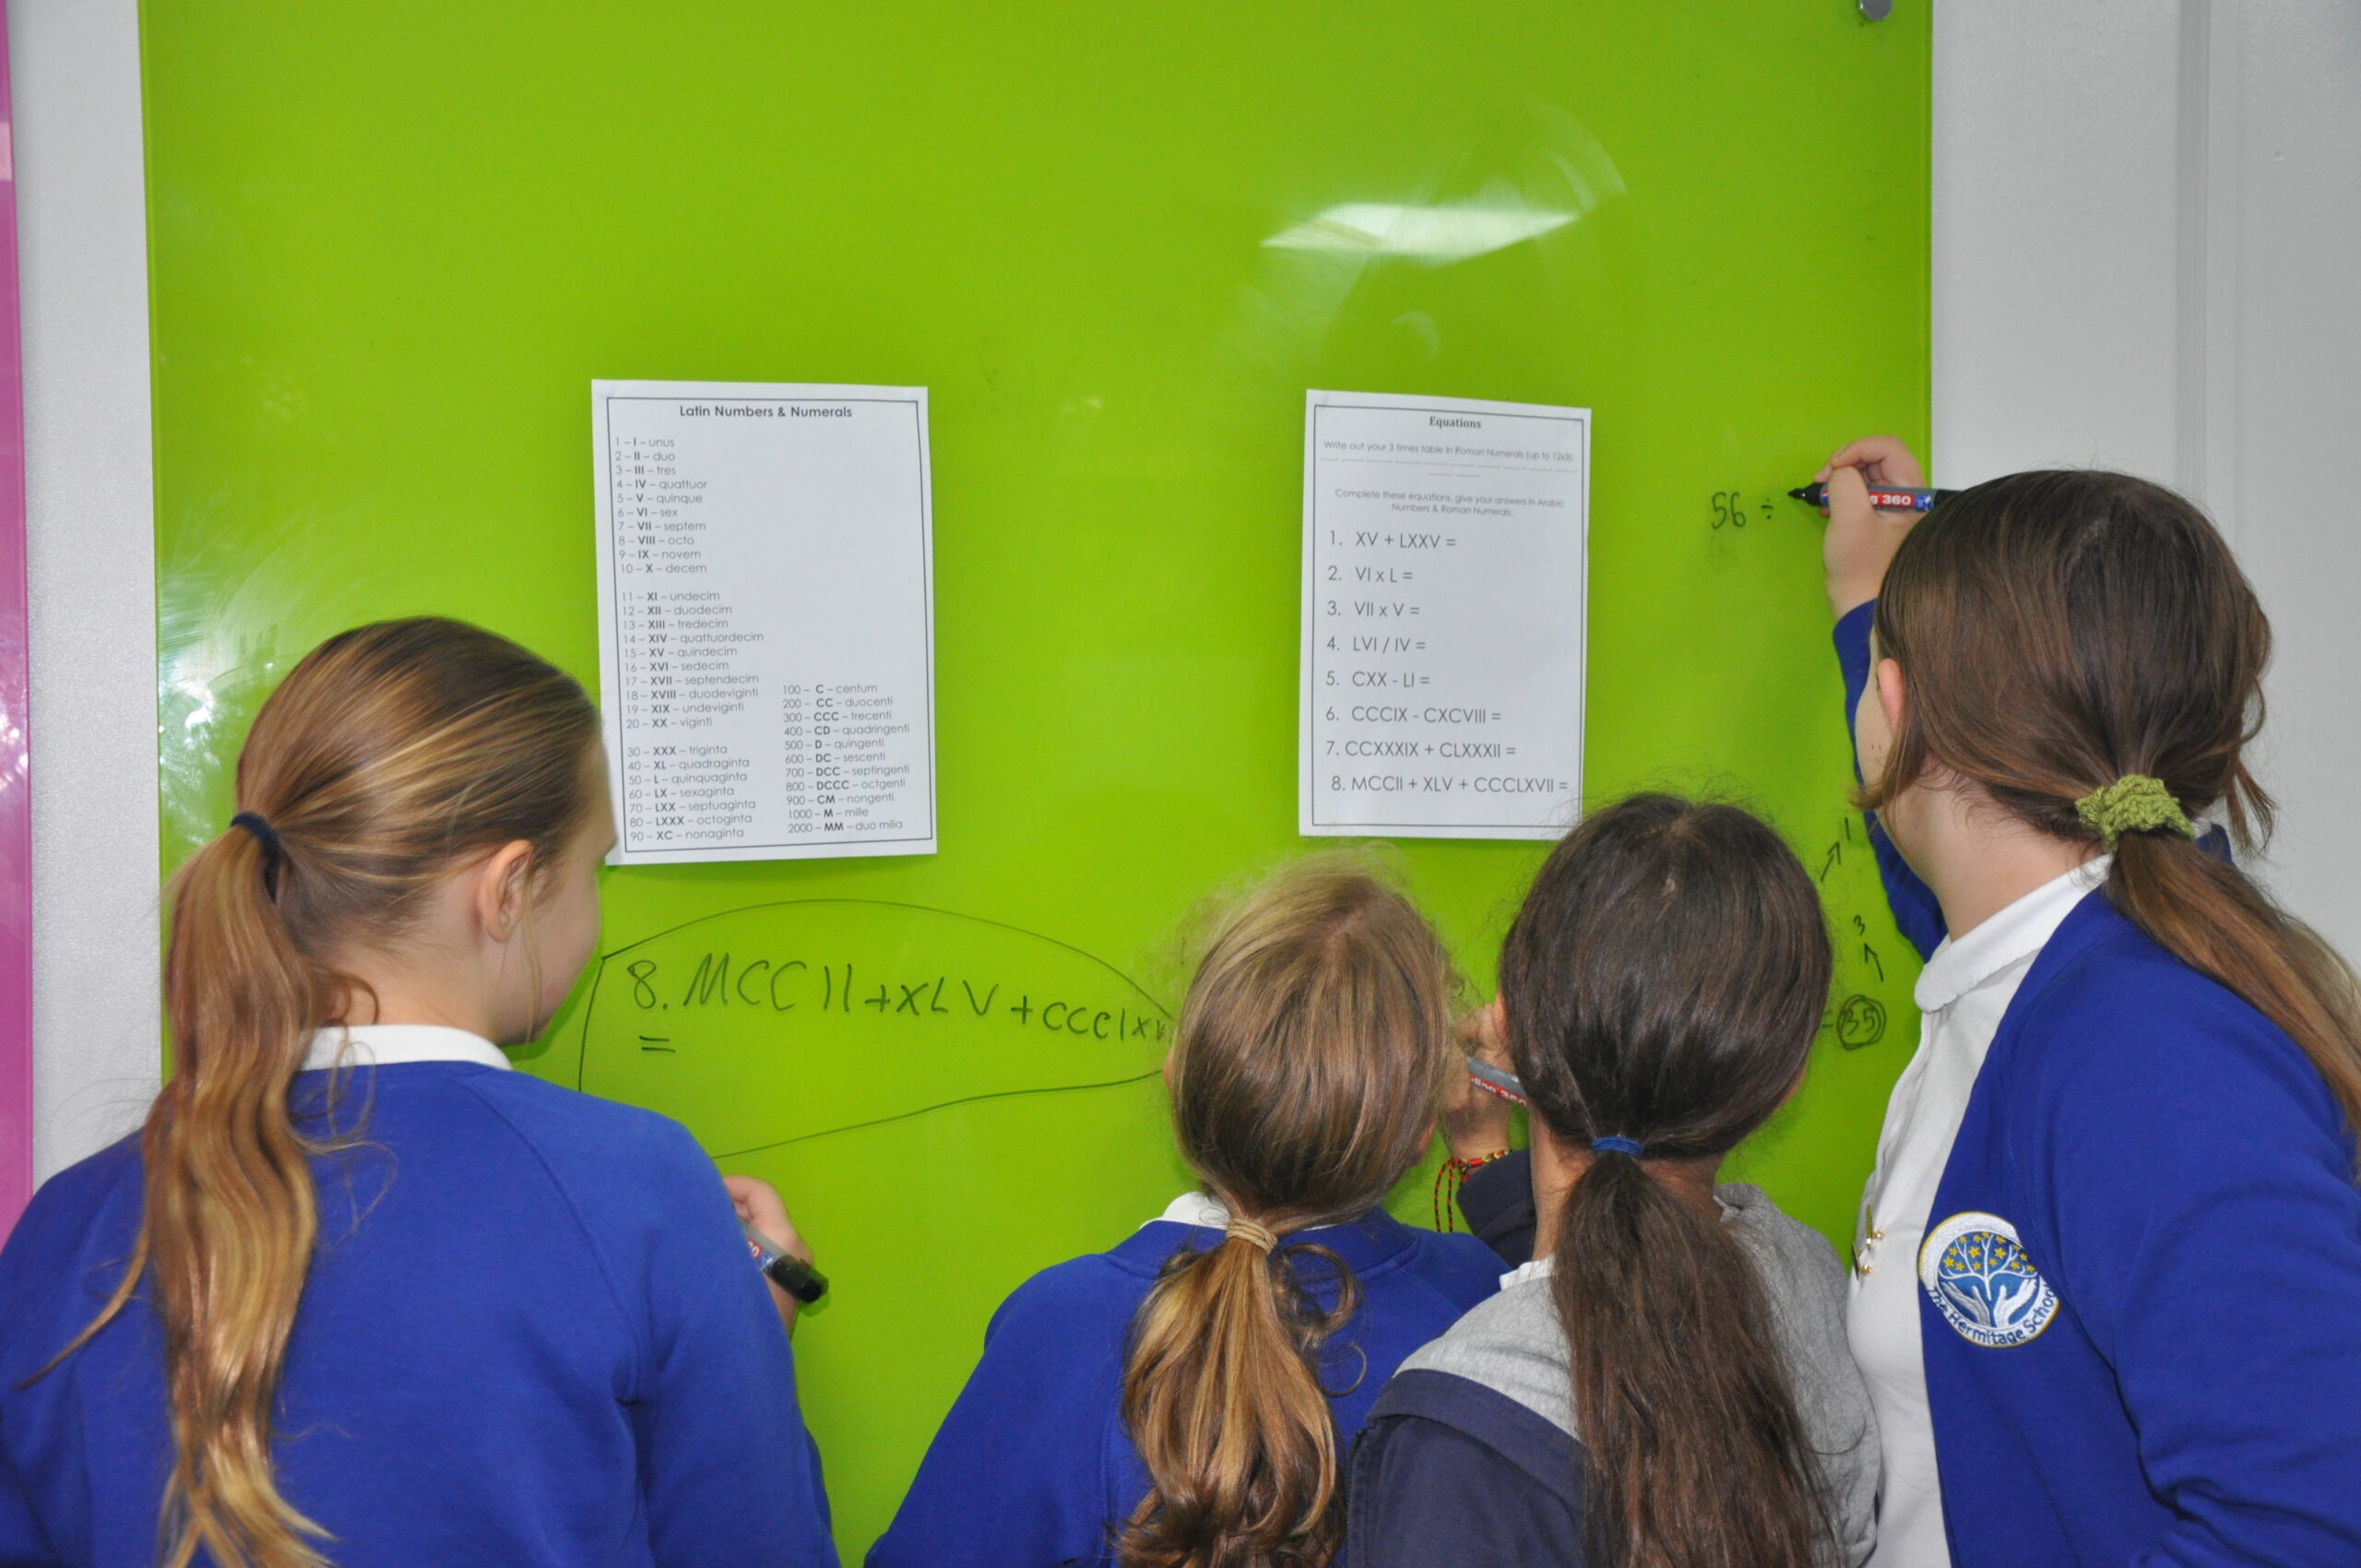 Latin Numbers & Numerals
1 – I – unus
2 – II – duo
3 – III – tres
4 – IV – quattuor
5 – V – quinque
6 – VI – sex
7 – VII – septem
8 – VIII – octo
9 – IX – novem
10 – X – decem
11 – XI – undecim
12 – XII – duodecim
13 – XIII – tredecim
14 – XIV – quattuordecim
15 – XV – quindecim
16 – XVI – sedecim
17 – XVII – septendecim
18 – XVIII – duodeviginti
19 – XIX – undeviginti
20 – XX – viginti
30 – XXX – triginta
40 – XL – quadraginta
50 – L – quinquaginta
60 – LX – sexaginta
70 – LXX – septuaginta
80 – LXXX – octoginta
90 – XC – nonaginta
100 – C – centum
200 – CC – duocenti
300 – CCC – trecenti
400 – CD – quadringenti
500 – D – quingenti
600 – DC – sescenti
700 – DCC – septingenti
800 – DCCC – octgenti
900 – CM – nongenti
1000 – M – mille
2000 – MM – duo milia
Equations
Write out your 3 times table in Roman Numerals (up to 12x3):
Complete these equations, give your answers in Arabic
Numbers & Roman Numerals:
1. XV + LXXV =
2. VI x L =
3. VII x V =
4. LVI / IV =
5. CXX - LI =
6. CCCIX - CXCVIII =
7. CCXXXIX + CLXXXII =
8. MCCII + XLV + CCCLXVII =
56 ÷
360
1
3
35
8. MCCII + XLV + CCCLX
=
The Hermitage School